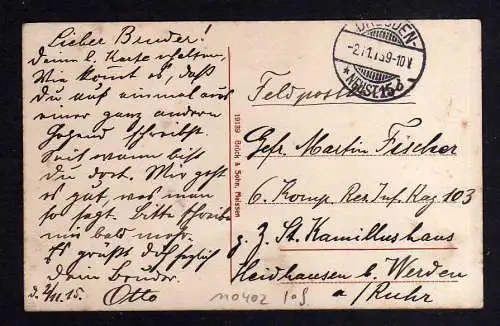 Lieber Bruder!
Deine l. Karte erhalten.
Wie komt es, daß
Du auf einmal aus
einer ganz andern
Gegend schreibst.
Seit wann bist
Du dort. Mir geht
es gut, was man
so sagt. Bitte schreibe
mir bald mehr.
Es grüßt dich herzlich
Dein Bruder
d. 2/11.15. Otto
19139 Brück & Sohn, Meissen
DRESDEN-
NEUST. 15 b
Feldpost
Gefr. Martin Fischer
6. Komp. Res. Inf. Reg 103
z. Z. St. Kamillushaus
Heidhausen b. Werden
a/Ruhr
110402